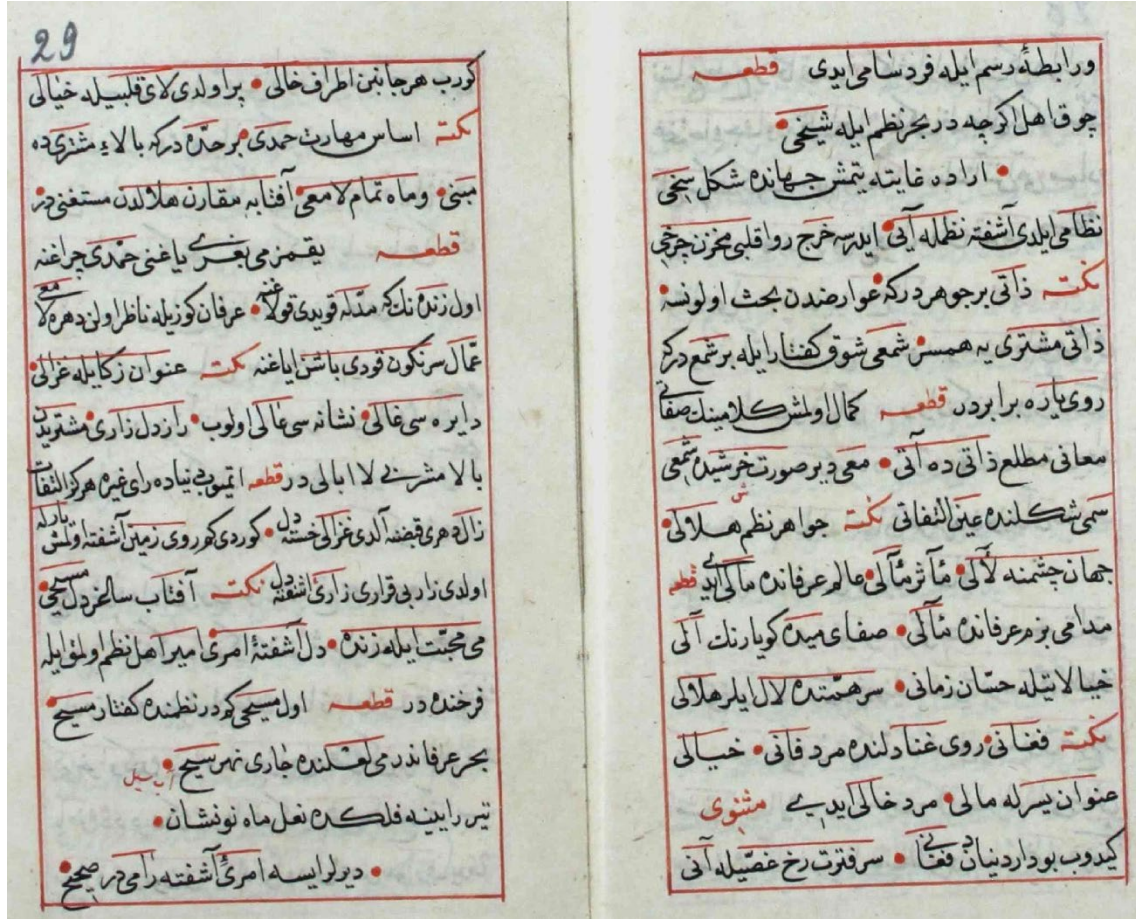 ورابطۀ رسم ایله فرد سامی ایدی قطعه
چوق اهل اکرچه در بحر نظم ایله شیخی
اراده غایته یتمش جهانده شکل سخی
نظامی ایلدی آشفته نظمله آنی ایدرسه خرج روا قلبی مخزن چرخی
نکته ذاتی بر جوهر درکه عوارضدن بحث اولونسه
ذاتی مشتری یه همسر شمعی شوق کفتار ایله بر شمع درکه
روی یاره برابردر قطعه کمال اولمش کلامینك صفاتی
معانی مطلع ذاتی ده آتی معی دیر صورت خرشیده شمعی
سمی شکلنده عین التفاتی نکته جواهر نظم هلالی
جهان چشمنه لآلی مآثر مآلی عالم عرفانده مالی ایدی قطعه
مدامی بزم عرفانده مآلی صفای میده کویا رنك آلی
خیالاتیله حسّان زمانی سر همّتده لال ایلر هلالی
نکته فغانی روی غنادلنده مرد فانی خیالی
عنوان یسرله مالی مرد خالی ایدی مثنوی
کیدوب بو داردنیادن فغانی سر فترت رخ غصّیله آنی
29
کورب هر جانبن اطراف خالی پر اولدی لای قلبیله خیالی
نکته اساس مهارت حمدی بر حدّه درکه بالاء مشتری ده
مبنی وماه تمام لامعی آفتابه مقارن هلالدن مستغنی در
قطعه یقمزمی بغری یاغنی حمدی چراغنه
اول زنده نك که مدّله قویدی قولاغنه عرفان کوزیله ناظر اولن دهره لامعی
عمّال سرنکون قودی باشن ایاغنه نکته عنوان زکا ایله غزالی
دایره سی غالی نشانه سی عالی اولوب راز دل زاری مشتریدن
بالا مشربی لا ابالی در قطعه اتیوب بی نیاده رای غیره هرکز التفات
زال دهری قبضه آلدی غزالی خسته دل کوردی کم روی زمین آشفته اولمش یارله
اولدی زار بی قراری زاری اشفته دل نکته آفتاب سالخرد دل مسیحی
می محبّت ایله زنده دل آشفتۀ امری امیر اهل نظم اولمق ایله
فرخنده در قطعه اول مسیحی کم در نظمنده کفتار مسیح
بحر عرفاندر می لعلنده جاری نهر سیح
آب سیل
تیر رایینه فلکده نعل ماه نو نشان
دیرلرایسه امری آشفته رامی در صحیح